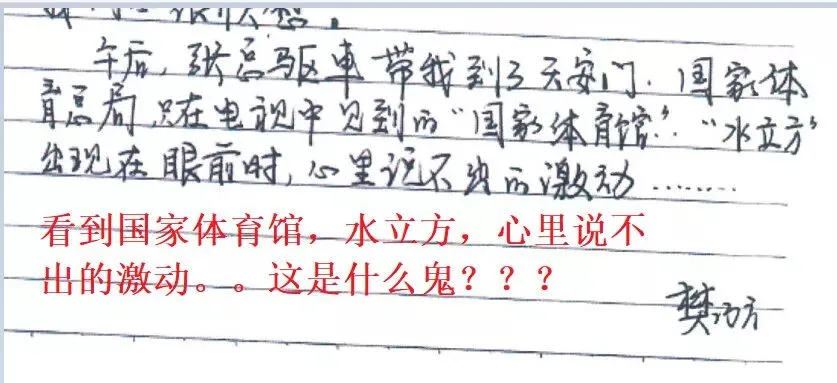 很快想。
午后,张总驱車带我到了天安门.国家体
育总局.只在电视中见到的"国家体育馆"."水立方"
出现在眼前时,心里说不出的激动……
看到国家体育馆，水立方，心里说不
出的激动。。这是什么鬼？？？
樊